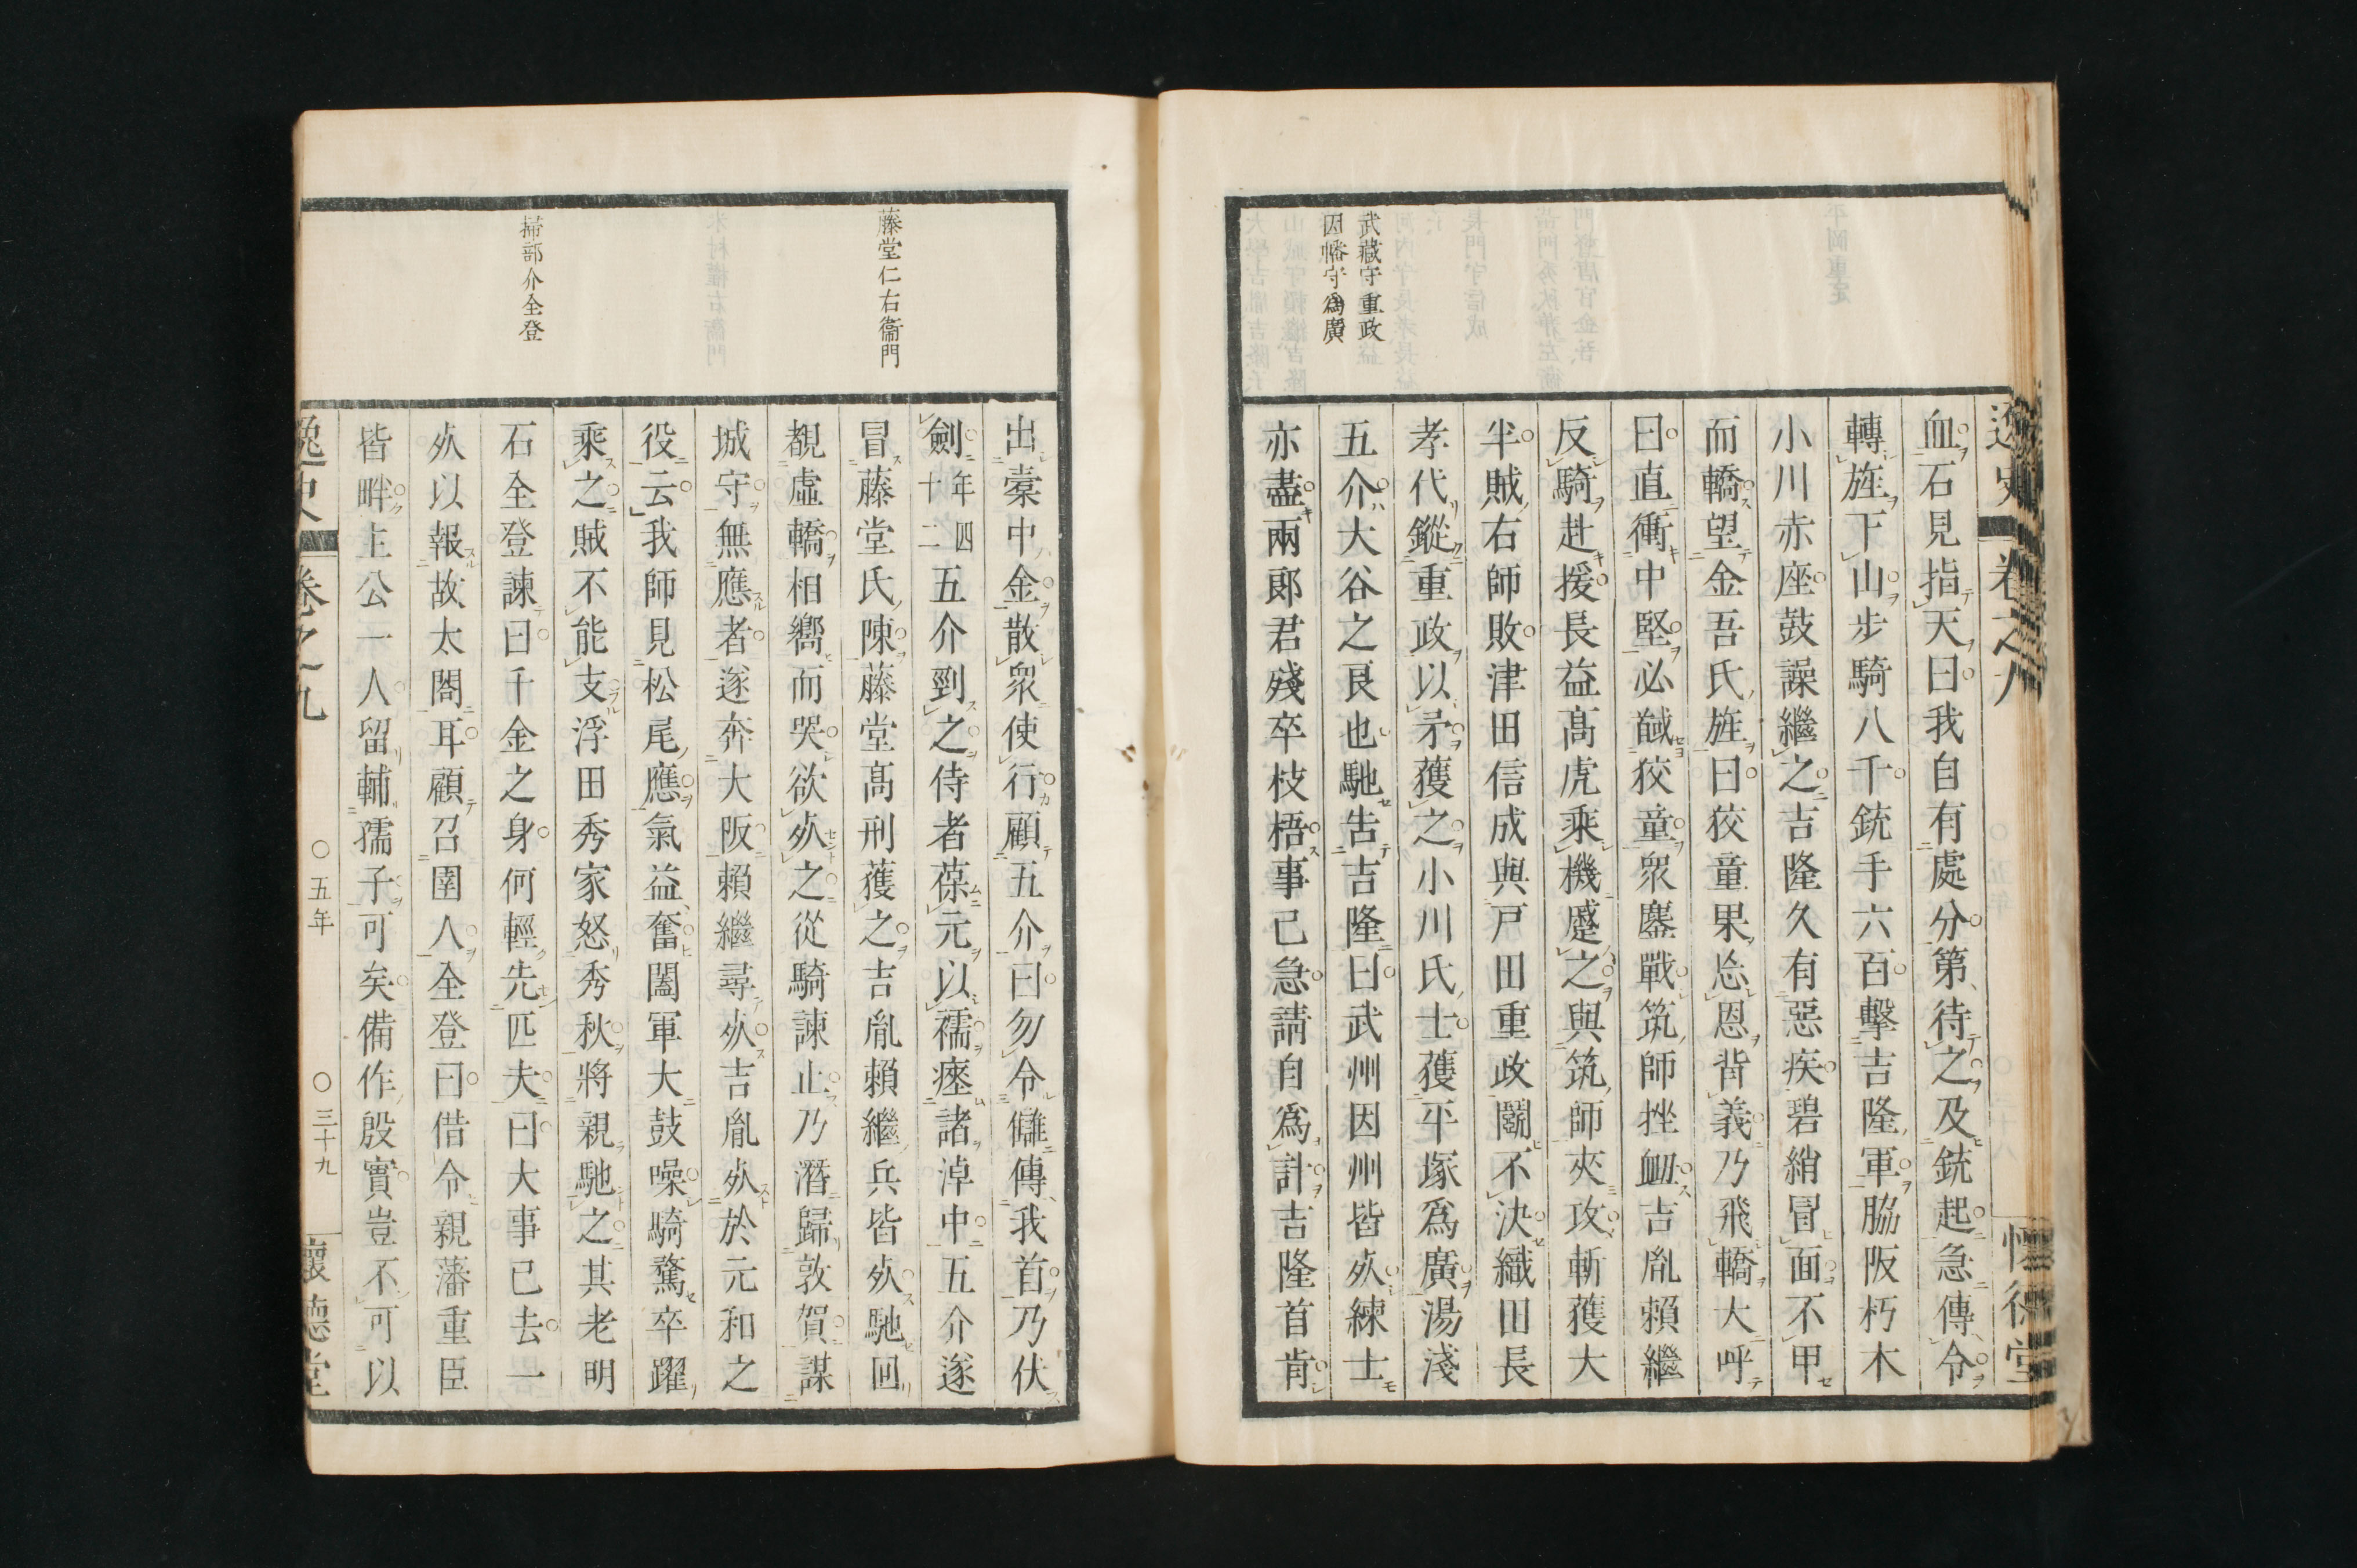 武藏守重政
因幡守爲廣
逸史
卷之八
懷德堂
血石見指天曰我自有處分第待之及銃起急傳令
轉旌下山步騎八千銃手六百擊吉隆軍脇阪朽木
小川赤座鼓譟繼之吉隆久有惡疾碧綃冒面不甲
而轎望金吾氏旌曰狡童果忘恩背義乃飛轎大呼
曰直衝中堅必馘狡童衆鏖戰筑師挫衂吉胤賴繼
反騎赴援長益高虎乘機蹙之與筑師夾攻斬獲大
半賊右師敗津田信成與戸田重政鬭不決織田長
孝代鏦重政以矛獲之小川氏士獲平塚爲廣湯淺
五介大谷之良也馳告吉隆曰武州因州皆㱿練士
亦盡兩郞君殘卒枝梧事已急請自爲計吉隆首肯
藤堂仁右衞門
掃部介全登
出橐中金散衆使行顧五介曰勿令讎傳我首乃伏
劍年四十二五介剄之侍者葆元以襦瘞諸淖中五介遂
冒藤堂氏陳藤堂高刑獲之吉胤賴繼兵皆死馳回
覩虛轎相嚮而哭欲死之從騎諫止乃潛歸敦賀謀
城守無應者遂奔大阪賴繼尋死吉胤死於元和之
役云我師見松尾應氣益奮闔軍大鼓噪騎騖卒躍
乘之賊不能支浮田秀家怒秀秋將親馳之其老明
石全登諫曰千金之身何輕先匹夫曰大事已去一
死以報故太閤耳顧召圉人全登曰借令親藩重臣
皆畔主公一人留輔孺子可矣備作殷實豈不可以
逸史
卷之九
○五年
○三十九
懷德堂